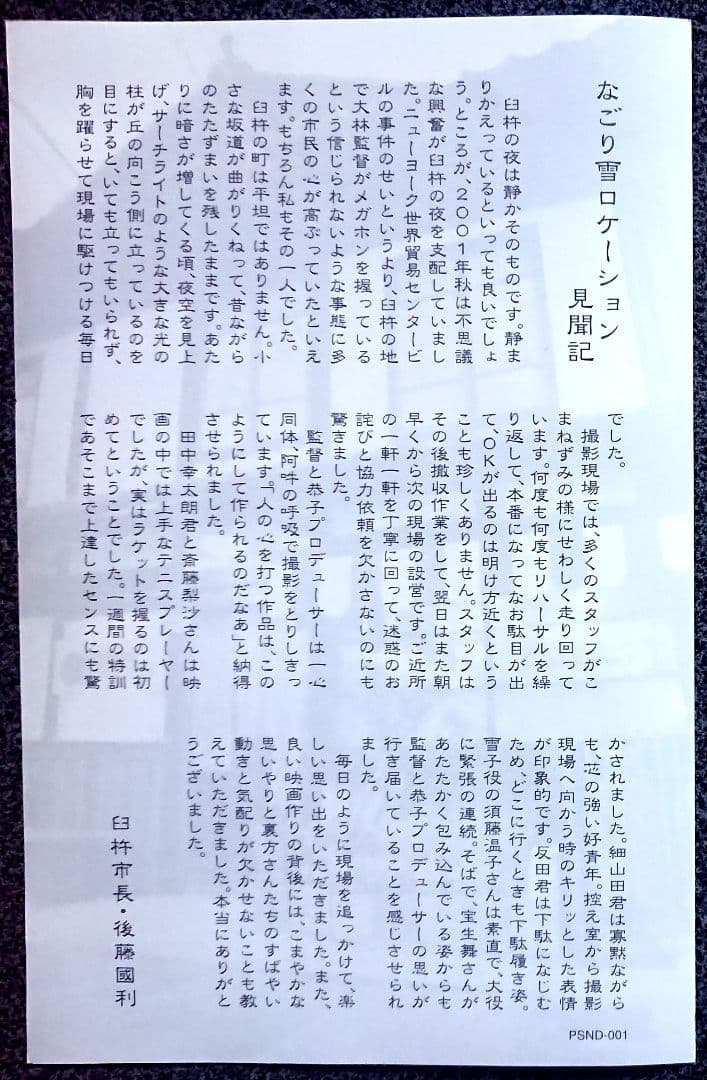 なごり雪ロケーション
見聞記
臼杵の夜は静かそのものです。静ま
りかえっているといっても良いでしょ
う。ところが、2001年秋は不思議
な興奮が臼杵の夜を支配していまし
た。ニューヨーク世界貿易センタービ
ルの事件のせいというより、臼杵の地
で大林監督がメガホンを握っている
という信じられないような事態に多
くの市民の心が高ぶっていたといえ
ます。もちろん私もその一人でした。
臼杵の町は平坦ではありません。小
さな坂道が曲がりくねって、昔ながら
のたたずまいを残したままです。あた
りに暗さが増してくる頃、夜空を見上
げ、サーチライトのような大きな光の
柱が丘の向こう側に立っているのを
目にすると、いても立ってもいられず、
胸を躍らせて現場に駆けつける毎日
でした。
撮影現場では、多くのスタッフがこ
まねずみの様にせわしく走り回って
います。何度も何度もリハーサルを繰
り返して、本番になってなお駄目が出
て、OKが出るのは明け方近くという
ことも珍しくありません。スタッフは
その後撤収作業をして、翌日はまた朝
早くから次の現場の設営です。ご近所
の一軒一軒を丁寧に回って、迷惑のお
詫びと協力依頼を欠かさないのにも
驚きました。
監督と恭子プロデューサーは一心
同体、阿吽の呼吸で撮影をとりしきっ
ています。「人の心を打つ作品は、この
ようにして作られるのだなあ」と納得
させられました。
田中幸太朗君と斎藤梨沙さんは映
画の中では上手なテニスプレーヤー
でしたが、実はラケットを握るのは初
めてということでした。一週間の特訓
であそこまで上達したセンスにも驚
かされました。細山田君は寡黙ながら
も、芯の強い好青年。控え室から撮影
現場へ向かう時のキリッとした表情
が印象的です。反田君は下駄になじむ
ため、どこに行くときも下駄履き姿。
雪子役の須藤温子さんは素直で、大役
に緊張の連続。そばで、宝生舞さんが
あたたかく包み込んでいる姿からも
監督と恭子プロデューサーの思いが
行き届いていることを感じさせられ
ました。
毎日のように現場を追っかけて、楽
しい思い出をいただきました。また、
良い映画作りの背後には、こまやかな
思いやりと裏方さんたちのすばやい
動きと気配りが欠かせないことも教
えていただきました。本当にありがと
うございました。
臼杵市長・後藤國利
PSND-001